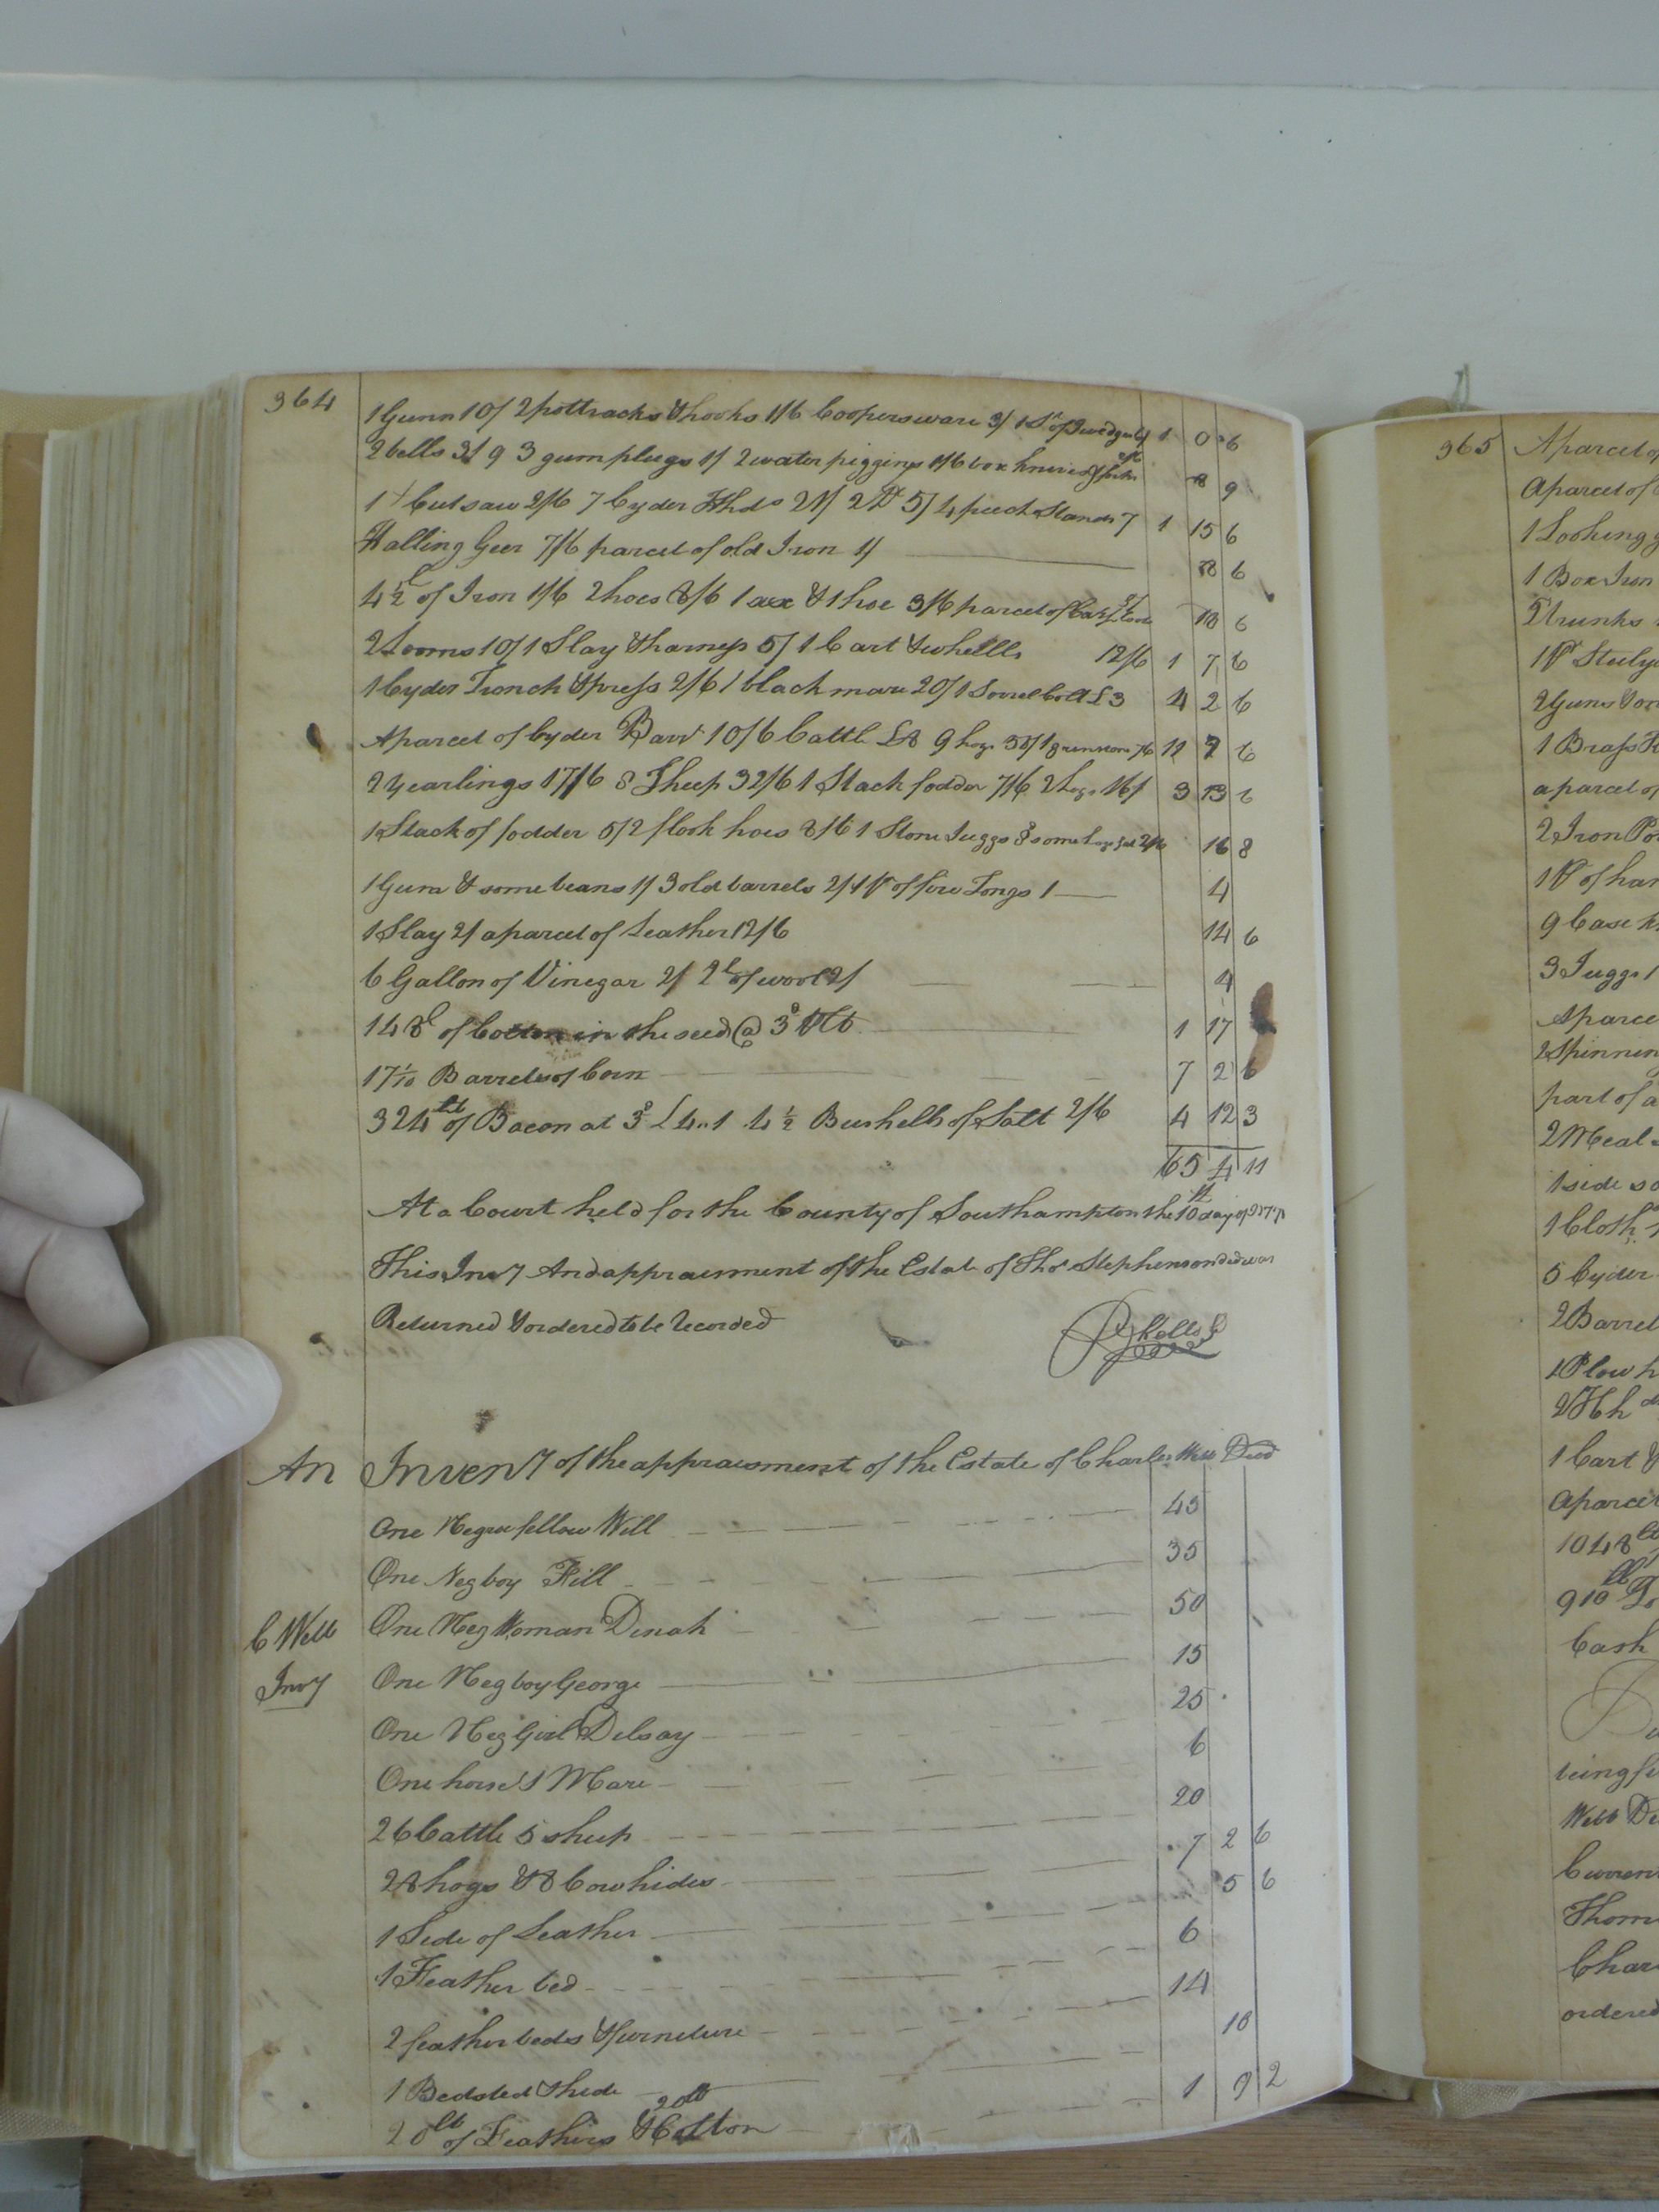 364
1 Gunn 10/ 2 pottracks & hooks 1/6 Coopersware 3/ 1 1 0 6
2 bells 3/9 3 gum plugs 1/ 2 water piggins 1/6 box knives & forks 8 9
1 + Cut saw 2/6 7 Cyder Hhds 21/ 2 Do 5/ 4 Stands 7 1 15 6
Halling Geer 7/6 parcel of old Iron 1/ 8 6
4½ l of Iron 1/6 2 hoes 8/6 1 axe & 1 hoe 3/6 parcel of 18 6
2 Looms 10/ 1 Slay & harness 5/ 1 Cart & whells 12/6 1 7 6
1 Cyder Tronch & press 2/6 1 black mare 20/ 1 Sorrel Colt £3 4 2 6
A parcel of Cyder 10/6 Cattle £8 9 hogs 7/6 12 7 6
2 Yearlings 17/6 8 Sheep 32/6 1 Stack fodder 7/6 2 hogs 16/ 3 13 6
1 Stack of fodder 5/ 2 flook hoes 8/6 1 Stone Juggs & some 2/6 16 8
1 Gum & some beans 1/ 3 old barrels 2/ 1 Pr of fire Tongs 1 4
1 Slay 2/ a parcel of Leather 12/6 14 6
6 Gallon of Vinegar 2/ 2 l of wool 2/ 4
148 l of Cotton in the seed @ 3d 1 17
17 1/10 Barrels of Corn 7 2 6
324 lb of Bacon at 3d £4..1 4½ Bushells of Salt 2/6 4 12 3
65 4 11
At a Court held for the County of Southampton the 10 day of
This Inv'y And appraisment of the Estate of Thos Stephenson decd was
Returned & ordered to be Recorded
R Kello
An Inven'y of the appraisment of the Estate of Charles Webb Decd
One Negroe fellow Will 45
One Neg boy 35
One Neg Woman Dinah 50
C Webb
One Neg boy George 15
Inv'y
One Neg Girl Delsay 25
One horse & 1 Mare 6
26 Cattle 5 sheep 20
28 hogs & 8 Cowhides 7 2 6
1 Side of Leather 5 6
1 Feather bed 6
2 feather beds & furneture 14
1 Bedsted & hide 10
20 lb of Feathers & 20 lb Cotton 1 9 2
365
A parcel of
A parcel of
1 Looking g
1 Box Iron
2 Trunks
1 Pr Steely
2 Guns
1 Brass K
a parcel of
2 Iron Po
1 Pr of
9 Case
3 Juggs
A parce
2 Spinnin
part of a
2 Meal
1 side
1 Cloth
5 Cyder
2 Barrel
1 Plow h
2 Hhd
1 Cart &
A parcel
1048 lb
910 lb
Cash
being
Webb De
Curren
Thom
Char
ordered